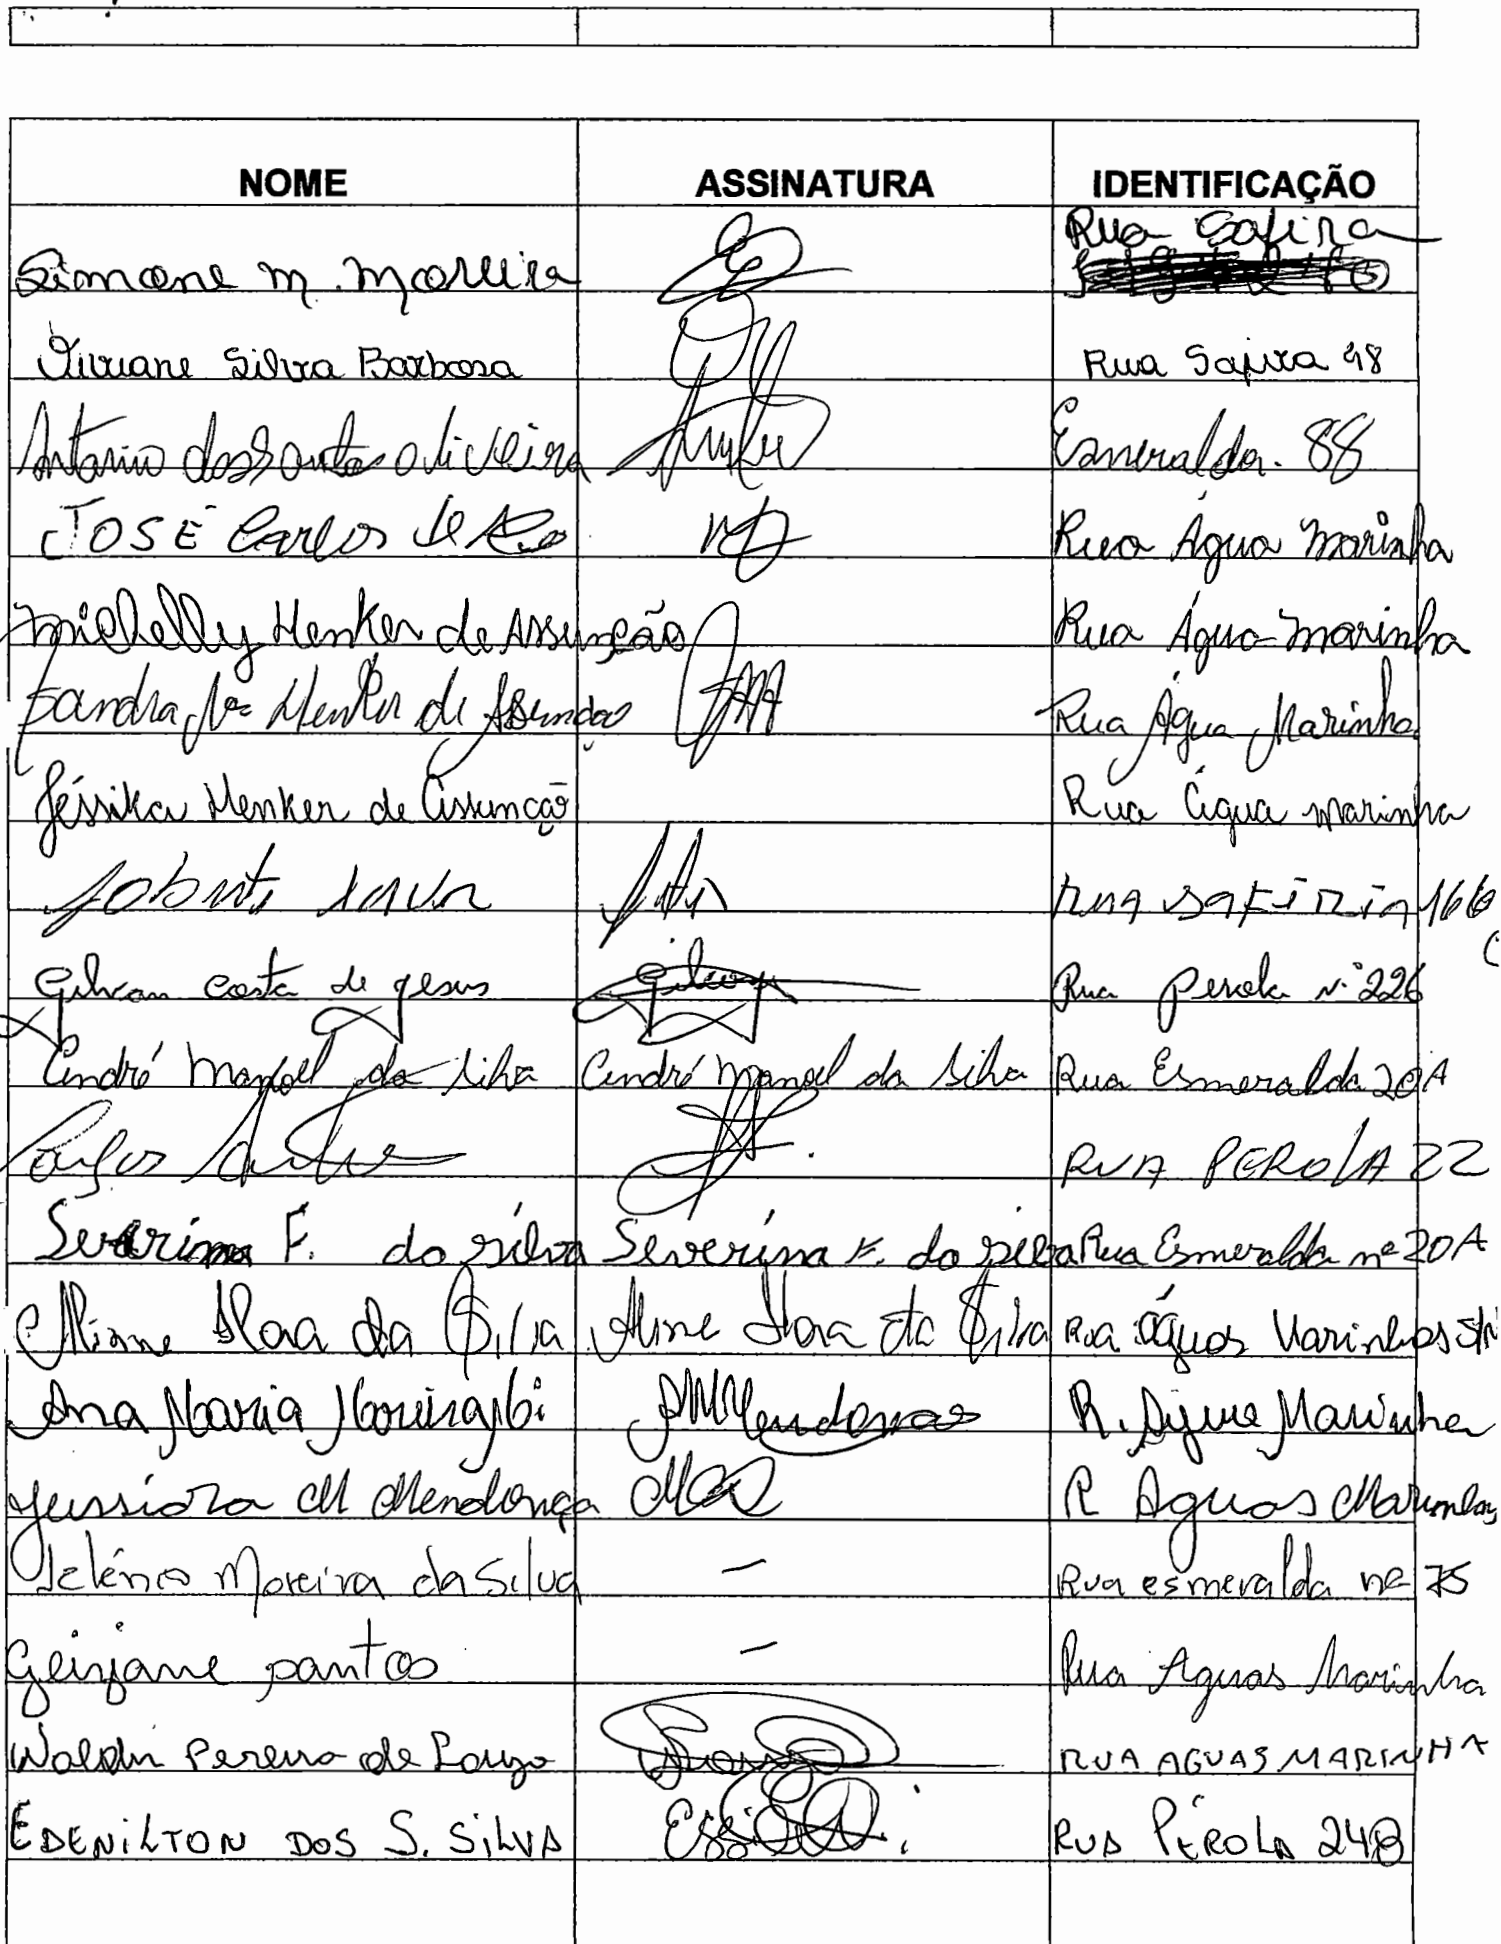 NOME ASSINATURA IDENTIFICAÇÃO
Rua Safira
Simone M. Moreira
Viviane Silva Barbosa Rua Safira 48
Antonio dos Santos Oliveira Esmeralda. 88
JOSÉ Carlos de Rua Água Marinha
Michelly Henker de Assunção Rua Água Marinha
Sandra Mª Henker de Assunção Rua Água Marinha
Jéssika Henker de Assuncão Rua Água Marinha
RUA SAFIRIA 166
Gilvan costa de gesus Gilvan Rua perola Nº 226
André Manoel da Silva André Manoel da Silva Rua Esmeralda 20A
RUA PEROLA 22
Severina F. da silva Severina F. da silva Rua Esmeralda nº 20A
da Silva da Silva Rua águas Marinhas S/N
Ana Maria AMMendonas R. Água Marinha
Jussiara M Mendonça R Aguas Marinhas
Moreira da Silva - Rua esmeralda nº 75
Geizjane santos - Rua Aguas Marinha
Waldir Pereira de Souza RUA AGUAS MARINHA
EDENILTON DOS S. SILVA RUA PÉROLA 248